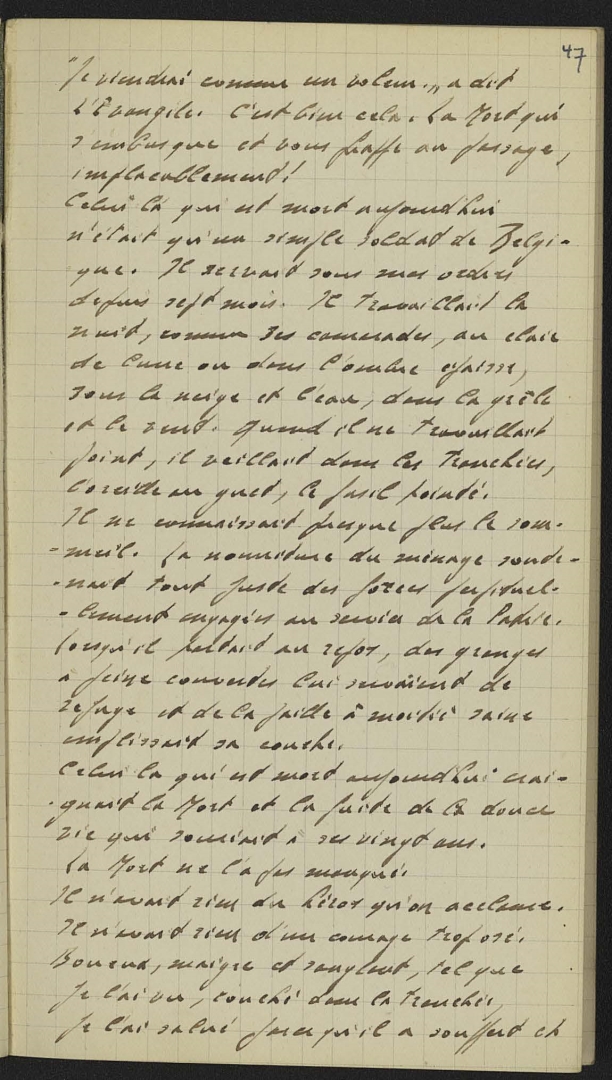 47
"Je viendrai comme un voleur.„ a dit
L'Evangile. C'est bien cela. La Mort qui
s'embusque et vous frappe au passage,
implacablement!
Celui là qui est mort aujourd'hui
n'était qu'un simple soldat de Belgi-
que. Il servait sous mes ordres
depuis sept mois. Il travaillait la
nuit, comme ses camarades, au clair
de lune ou dans l'ombre épaisse,
sous la neige et l'eau, dans la grêle
et le vent. Quand il ne travaillait
point, il veillait dans les tranchées,
l'oreille au guet, le fusil pointé.
Il ne connaissait presque plus le som-
-meil. La nourriture du ménage soute-
-nait tout juste des forces perpétuel-
-lement engagées au service de la Patrie.
Lorsqu'il partait au repos, des granges
à peine couvertes lui servaient de
refuge et de la paille à moitié saine
emplissait sa couche.
Celui là qui est mort aujourd'hui crai-
-gnait la Mort et la fuite de la douce
vie qui souriait à ses vingt ans.
La Mort ne l'a pas manqué.
Il n'avait rien du héros qu'on acclame.
Il n'avait rien d'un courage trop osé.
Boueux, maigre et sanglant, tel que
je l'ai vu, couché dans la tranchée,
je l'ai salué parce qu'il a souffert et